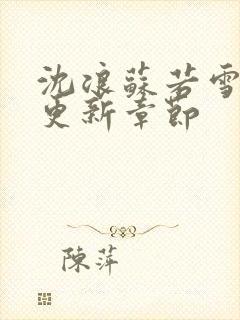 沈浪蘇若雪
更新章節
陳萍